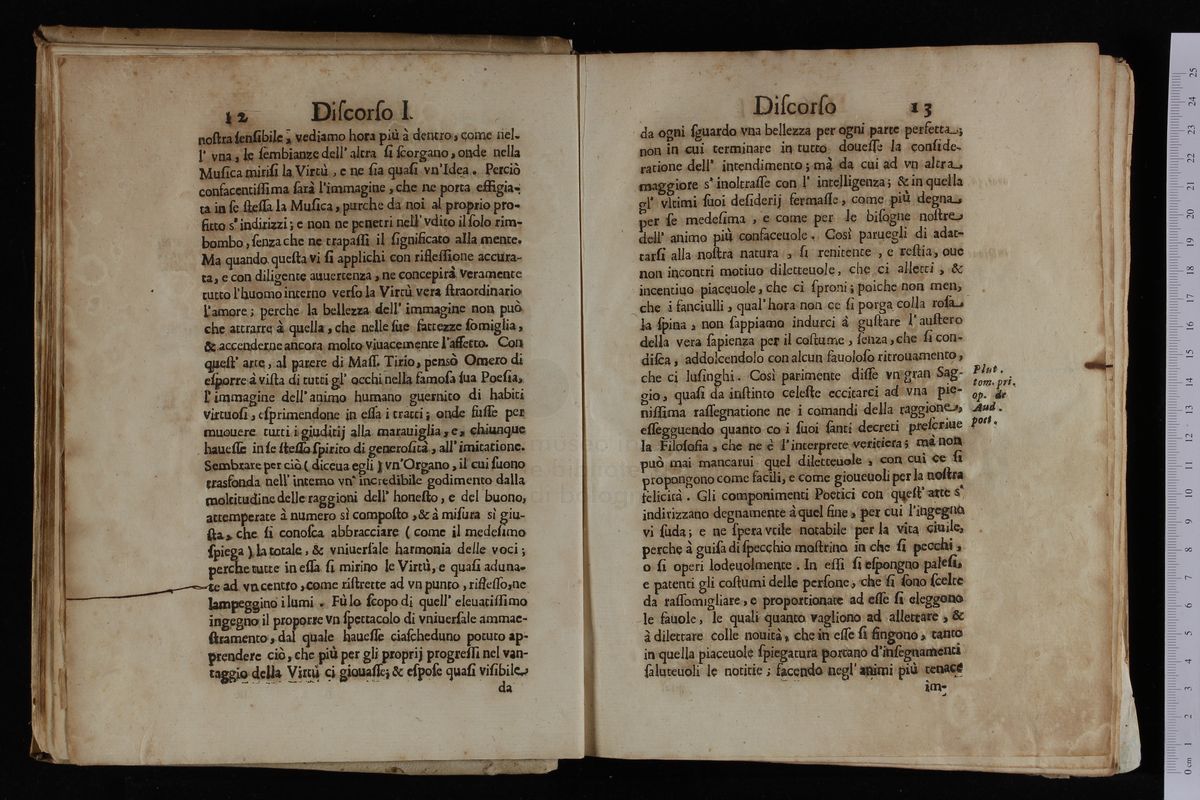 12 Diſcorſo I.
noſtra ſenſibile; vediamo hora più à dentro, come nel-
l' vna, le ſembianze dell' altra ſi ſcorgano, onde nella
Muſica miriſi la Virtù, e ne ſia quaſi vn'Idea. Perciò
confacentiſſima ſarà l'immagine, che ne porta effigia-
ta in ſe ſteſſa la Muſica, purche da noi al proprio pro-
fitto s'indirizzi; e non ne penetri nell' vdito il ſolo rim-
bombo, ſenza che ne trapaſſi il ſignificato alla mente.
Ma quando queſta vi ſi applichi con rifleſſione accura-
ta, e con diligente auuertenza, ne concepirà veramente
tutto l'huomo interno verſo la Virtù vera ſtraordinario
l'amore; perche la bellezza dell' immagine non può
che attrarre à quella, che nelle ſue fattezze ſomiglia,
& accenderne ancora molto viuacemente l'affetto. Con
queſt' arte, al parere di Maſſ. Tirio, pensò Omero di
eſporre à viſta di tutti gl' occhi nella famoſa ſua Poeſia,
l' immagine dell' animo humano guernito di habiti
virtuoſi, eſprimendone in eſſa i tratti; onde fuſſe per
muouere tutti i giuditij alla marauiglia, e, chiunque
haueſſe in ſe ſteſſo ſpirito di generoſità, all' imitatione.
Sembrare per ciò (diceua egli) vn'Organo, il cui ſuono
trasfonda nell' interno vn' incredibile godimento dalla
moltitudine delle raggioni dell' honeſto, e del buono,
attemperate à numero sì compoſto, & à miſura sì giu-
ſta, che ſi conoſca abbracciare (come il medeſimo
ſpiega) la totale, & vniuerſale harmonia delle voci;
perche tutte in eſſa ſi mirino le Virtù, e quaſi aduna-
te ad vn centro, come riſtrette ad vn punto, rifleſſo, ne
lampeggino i lumi. Fù lo ſcopo di quell' eleuatiſſimo
ingegno il proporre vn ſpettacolo di vniuerſale ammae-
ſtramento, dal quale haueſſe ciaſcheduno potuto ap-
prendere ciò, che più per gli proprij progreſſi nel van-
taggio della Virtù ci giouaſſe; & eſpoſe quaſi viſibile
da
Diſcorſo 13
da ogni ſguardo vna bellezza per ogni parte perfetta;
non in cui terminare in tutto doueſſe la conſide-
ratione dell' intendimento; mà da cui ad vn altra
maggiore s' inoltraſſe con l' intelligenza; & in quella
gl' vltimi ſuoi deſiderij fermaſſe, come più degna
per ſe medeſima, e come per le biſogne noſtre
dell' animo più confaceuole. Così paruegli di adat-
tarſi alla noſtra natura, ſi renitente, e reſtia, oue
non incontri motiuo diletteuole, che ci alletti, &
incentiuo piaceuole, che ci ſproni; poiche non men,
che i fanciulli, qual' hora non ce ſi porga colla roſa
la ſpina, non ſappiamo indurci à guſtare l' auſtero
della vera ſapienza per il coſtume, ſenza, che ſi con-
diſca, addolcendolo con alcun fauoloſo ritrouamento,
che ci luſinghi. Così parimente diſſe vn gran Sag-
gio, quaſi da inſtinto celeſte eccitarci ad vna pie-
niſſima raſſegnatione ne i comandi della raggione,
eſſeguendo quanto co i ſuoi ſanti decreti preſcriue
la Filoſofia, che ne è l'interprete veritiera; mà non
può mai mancarui quel diletteuole, con cui ce ſi
propongono come facili, e come gioueuoli per la noſtra
felicità. Gli componimenti Poetici con queſt' arte s'
indirizzano degnamente à quel fine, per cui l'ingegno
vi ſuda; e ne ſpera vtile notabile per la vita ciuile,
perche à guiſa di ſpecchio moſtrino in che ſi pecchi,
o ſi operi lodeuolmente. In eſſi ſi eſpongno paleſi,
e patenti gli coſtumi delle perſone, che ſi ſono ſcelte
da raſſomigliare, e proportionate ad eſſe ſi eleggono
le fauole, le quali quanto vagliono ad allettare, &
à dilettare colle nouità, che in eſſe ſi fingono, tanto
in quella piaceuole ſpiegatura portano d'inſegnamenti
ſaluteuoli le notitie; facendo negl' animi più tenace
im-
Plut.
tom. pri.
op. de
Aud.
poet.